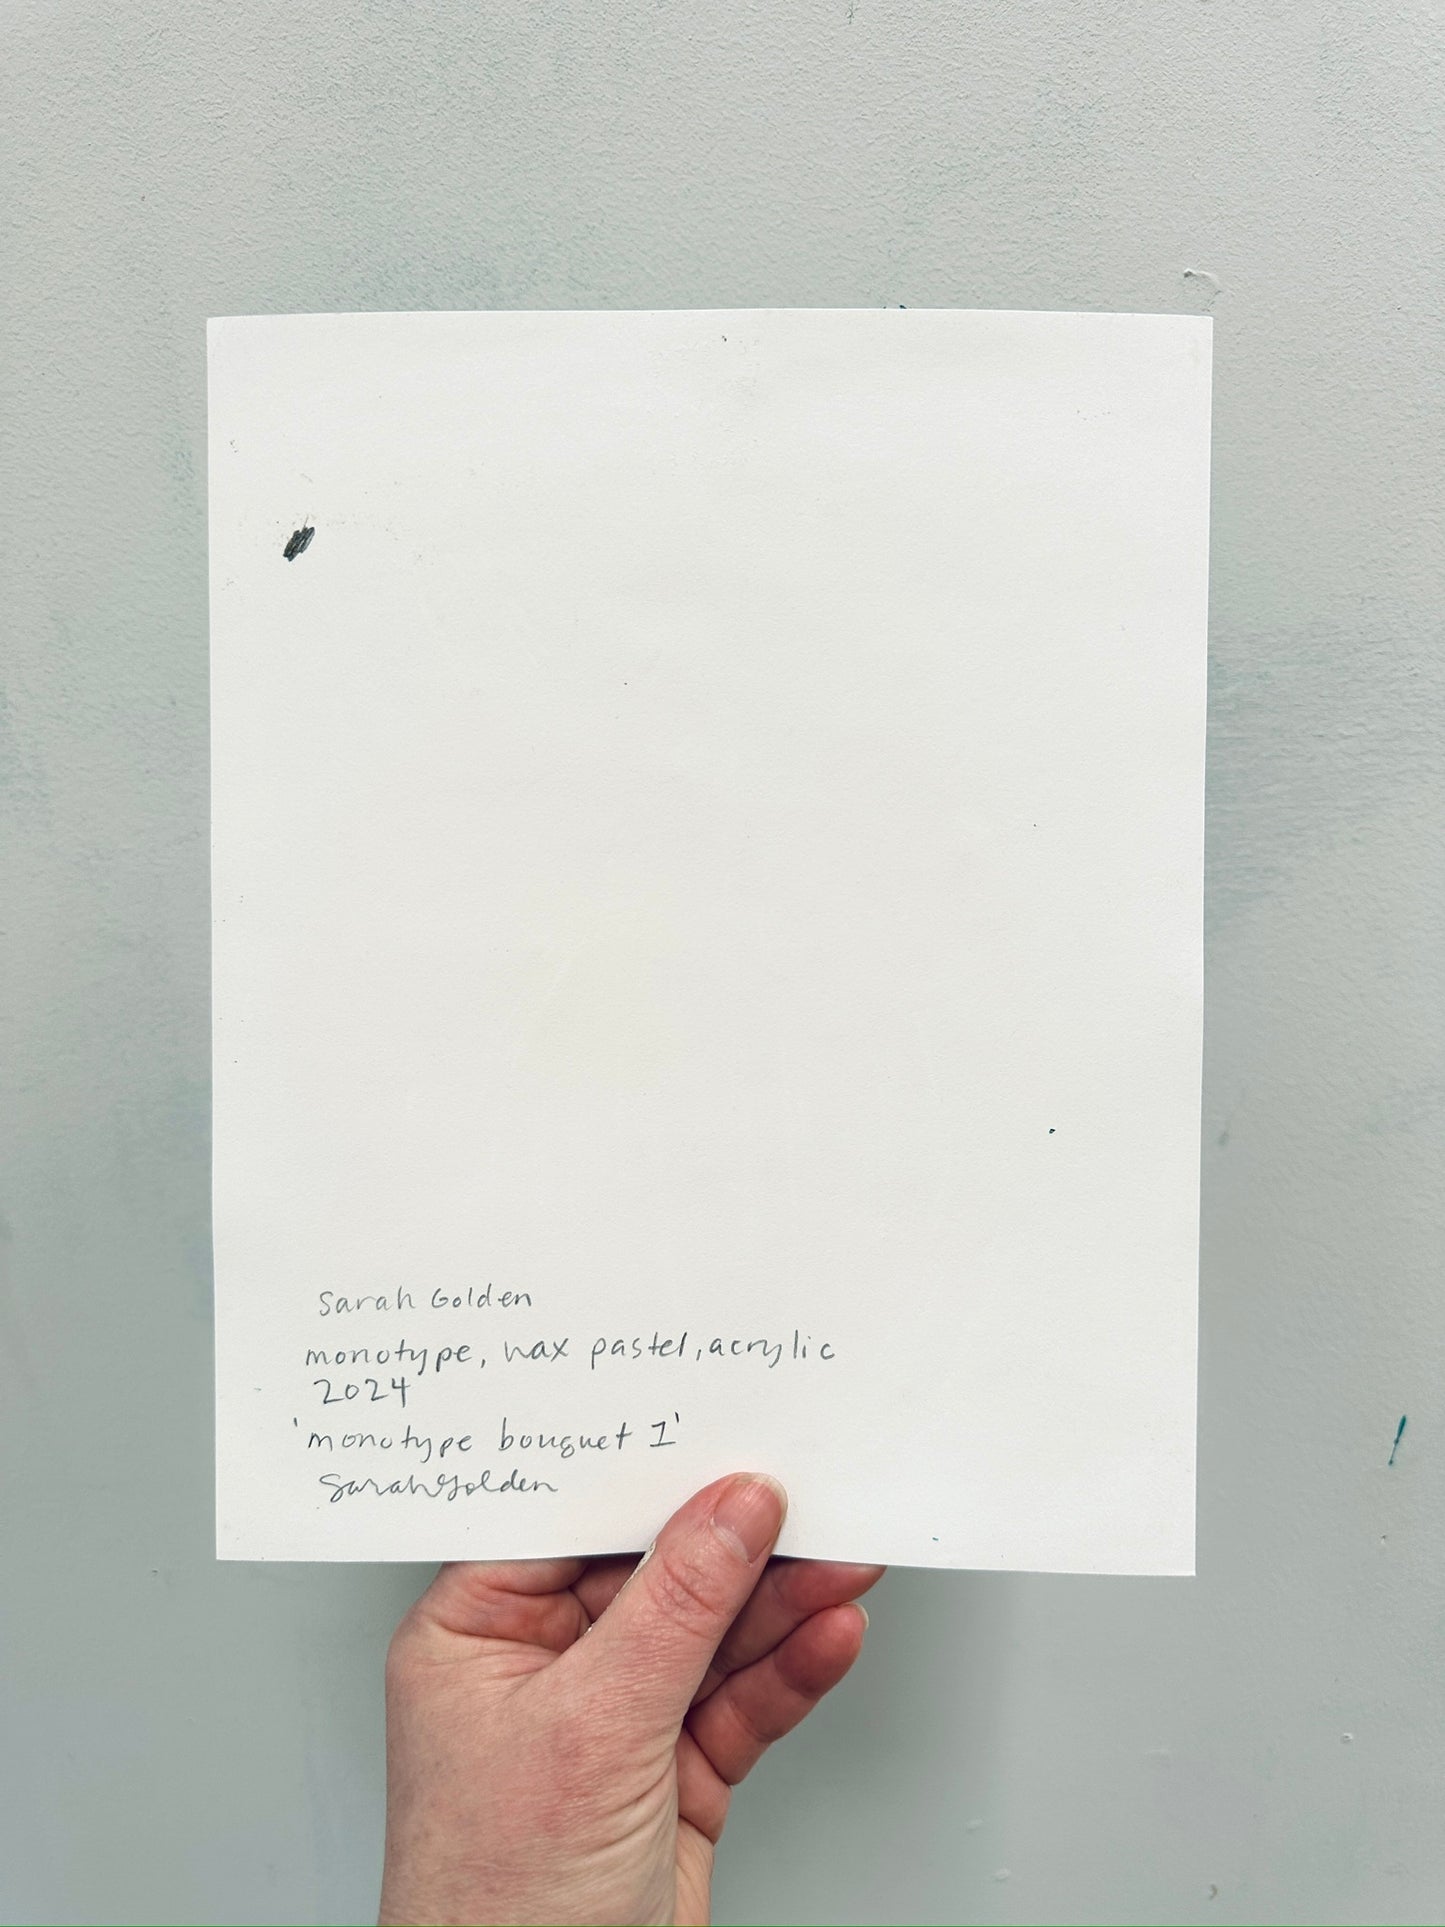 Sarah Golden
monotype, wax pastel, acrylic
2024
'monotype bouquet 1'
Sarah Golden